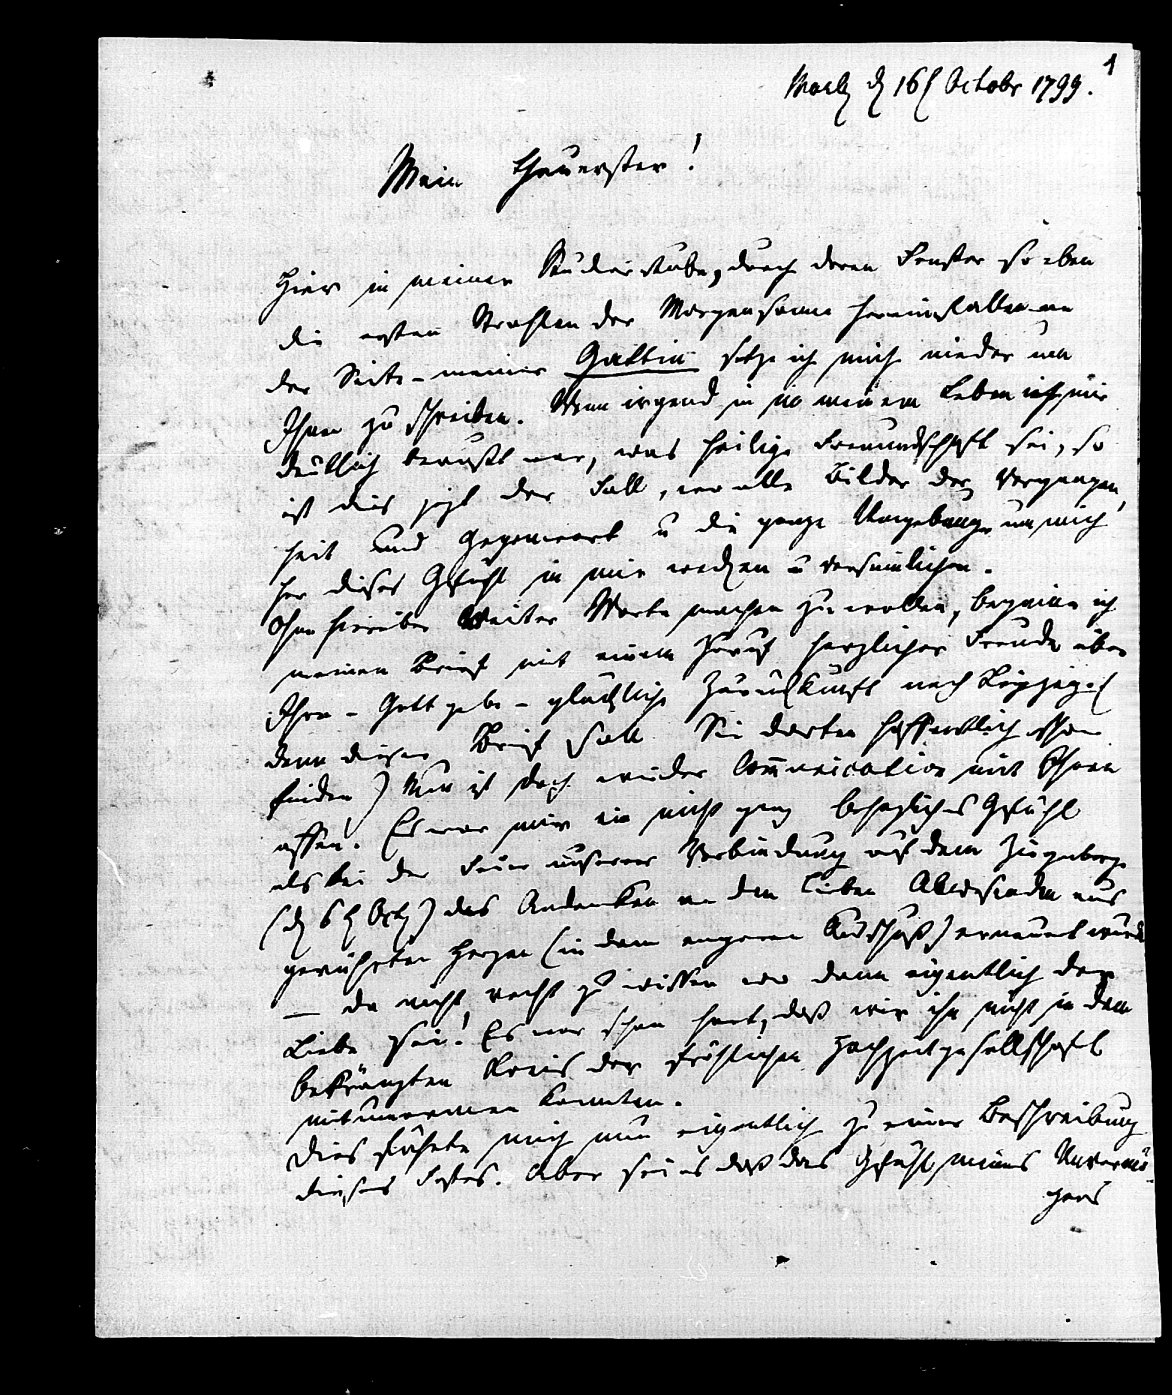 1
d 16t Octobr 1799.
Mein Theuerster!
Hier in meiner Studierstube, durch deren Fenster so eben
die ersten Strahlen der Morgensonne hereinfallen an
der Seite meiner Gattin setze ich mich nieder um
Ihnen zu schreiben. Wenn irgend in meinem Leben ich mir
deutlich bewußt war, was heilige Freundschaft sei, so
ist dies jezt der Fall, wo alle Bilder der Vergangen
heit und Gegenwart u die ganze Umgebung um mich
her dieses Gefühl in mir wecken u versinnlichen.
Ohne hierüber weiter Worte machen zu wollen, beginne ich
meinen Brief mit einem Zuruf herzlicher Freude über
Ihre - Gott gebe - glückliche Zurückkunft nach Leipzig. (
denn dieser Brief soll Sie dorten hoffentlich schon
finden) Nun ist doch wieder Communication mit Ihnen
offen! Es war mir ein nicht ganz behagliches Gefühl
als bei der Feier unserer Verbindung auf dem
(d 6t Oct) das Andenken an den lieben Abwesenden aus
gerührten Herzen (in dem engeren Ausschuß) erneuert wurde
— da nicht recht zu wissen wo denn eigentlich der
Liebe sei! Es war schon hart, daß wir ihn nicht in den
bekränzten Kreis der fröhlichen Hochzeitgesellschaft
mitumarmen konnten.
Dies führte mich nun eigentlich zu einer Beschreibung
dieses Festes. Aber sei es daß das Gefühl meines Unvermö
gens